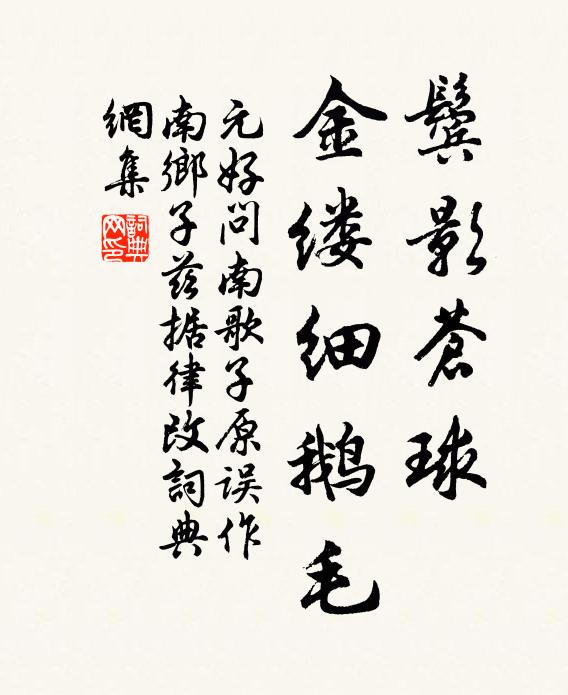 鬓影苍球
金缕细鹅毛
元好问南歌子原误作
南鄉子兹据律改詞典
網集
詞典網印